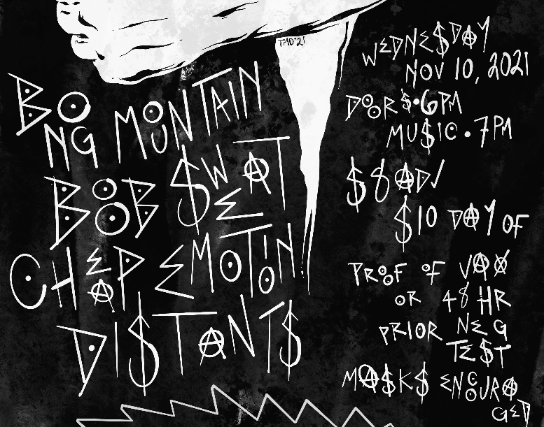 TMD '21
BONG MOUNTAIN
BOB SWEAT
CHEAP EMOTION
DISTANTS
WEDNESDAY
NOV 10, 2021
DOORS • 6PM
MUSIC • 7PM
$8 ADV
$10 DAY OF
PROOF OF VAX
OR 48 HR
PRIOR NEG
TEST
MASKS ENCOURA
GED